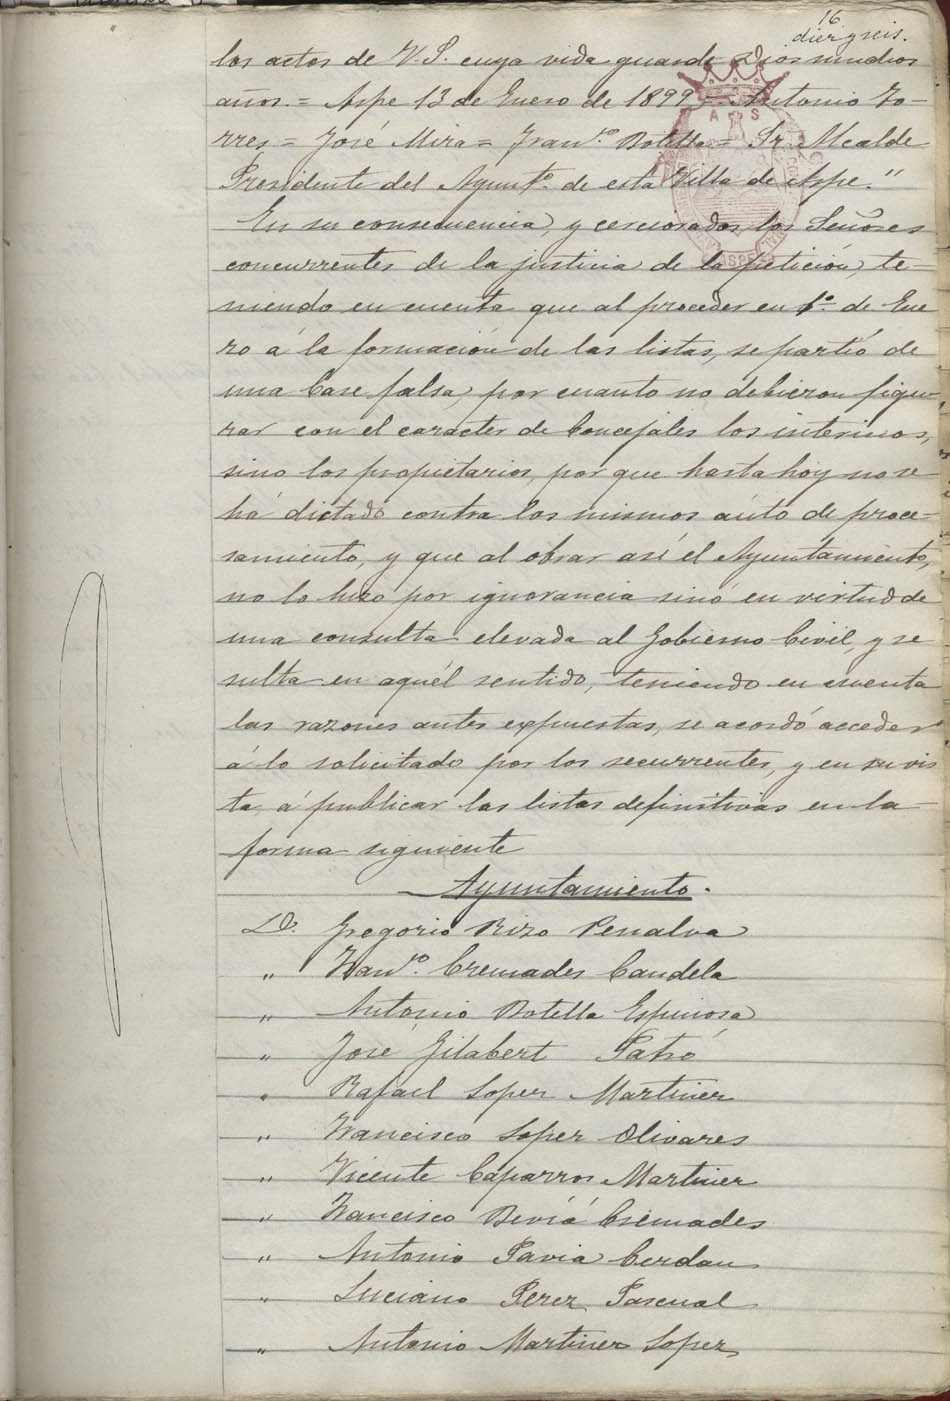 16
diez y seis.
los actos de V.S. cuya vida guarde Dios muchos
años.= Aspe 13 de Enero de 1899 = Antonio To-
rres = José Mira = Franco. Botella = Sr. Alcalde
Presidente del Ayuntº. de esta Villa de Aspe."
En su consecuencia, y cerciorados los Señores
concurrentes de la justicia de la petición, te-
niendo en cuenta que al proceder en 1º. de Ene
ro á la formación de las listas, se partió de
una base falsa, por cuanto no debieron figu-
rar con el caracter de Concejales los interinos,
sino los propietarios, por que hasta hoy no se
há dictado contra los mismos aúto de proce-
samiento, y que al obrar así el Ayuntamiento,
no lo hizo por ignorancia sinó en virtud de
una consulta elevada al Gobierno Civil, y re
sulta en aquél sentido, teniendo en cuenta
las razones antes expuestas, se acordó acceder
á lo solicitado por los recurrentes, y en su vis
ta, á publicar las listas definitivas en la
forma siguiente
Ayuntamiento.
D. Gregorio Rizo Penalva
" Franco. Cremades Candela
" Antonio Botella Espinosa
" José Gilabert Satró
" Rafael Lopez Martinez
" Francisco Lopez Olivares
" Vicente Caparros Martinez
" Francisco Beviá Cremades
" Antonio Pavia Cerdan
" Luciano Perez Pascual
" Antonio Martinez Lopez